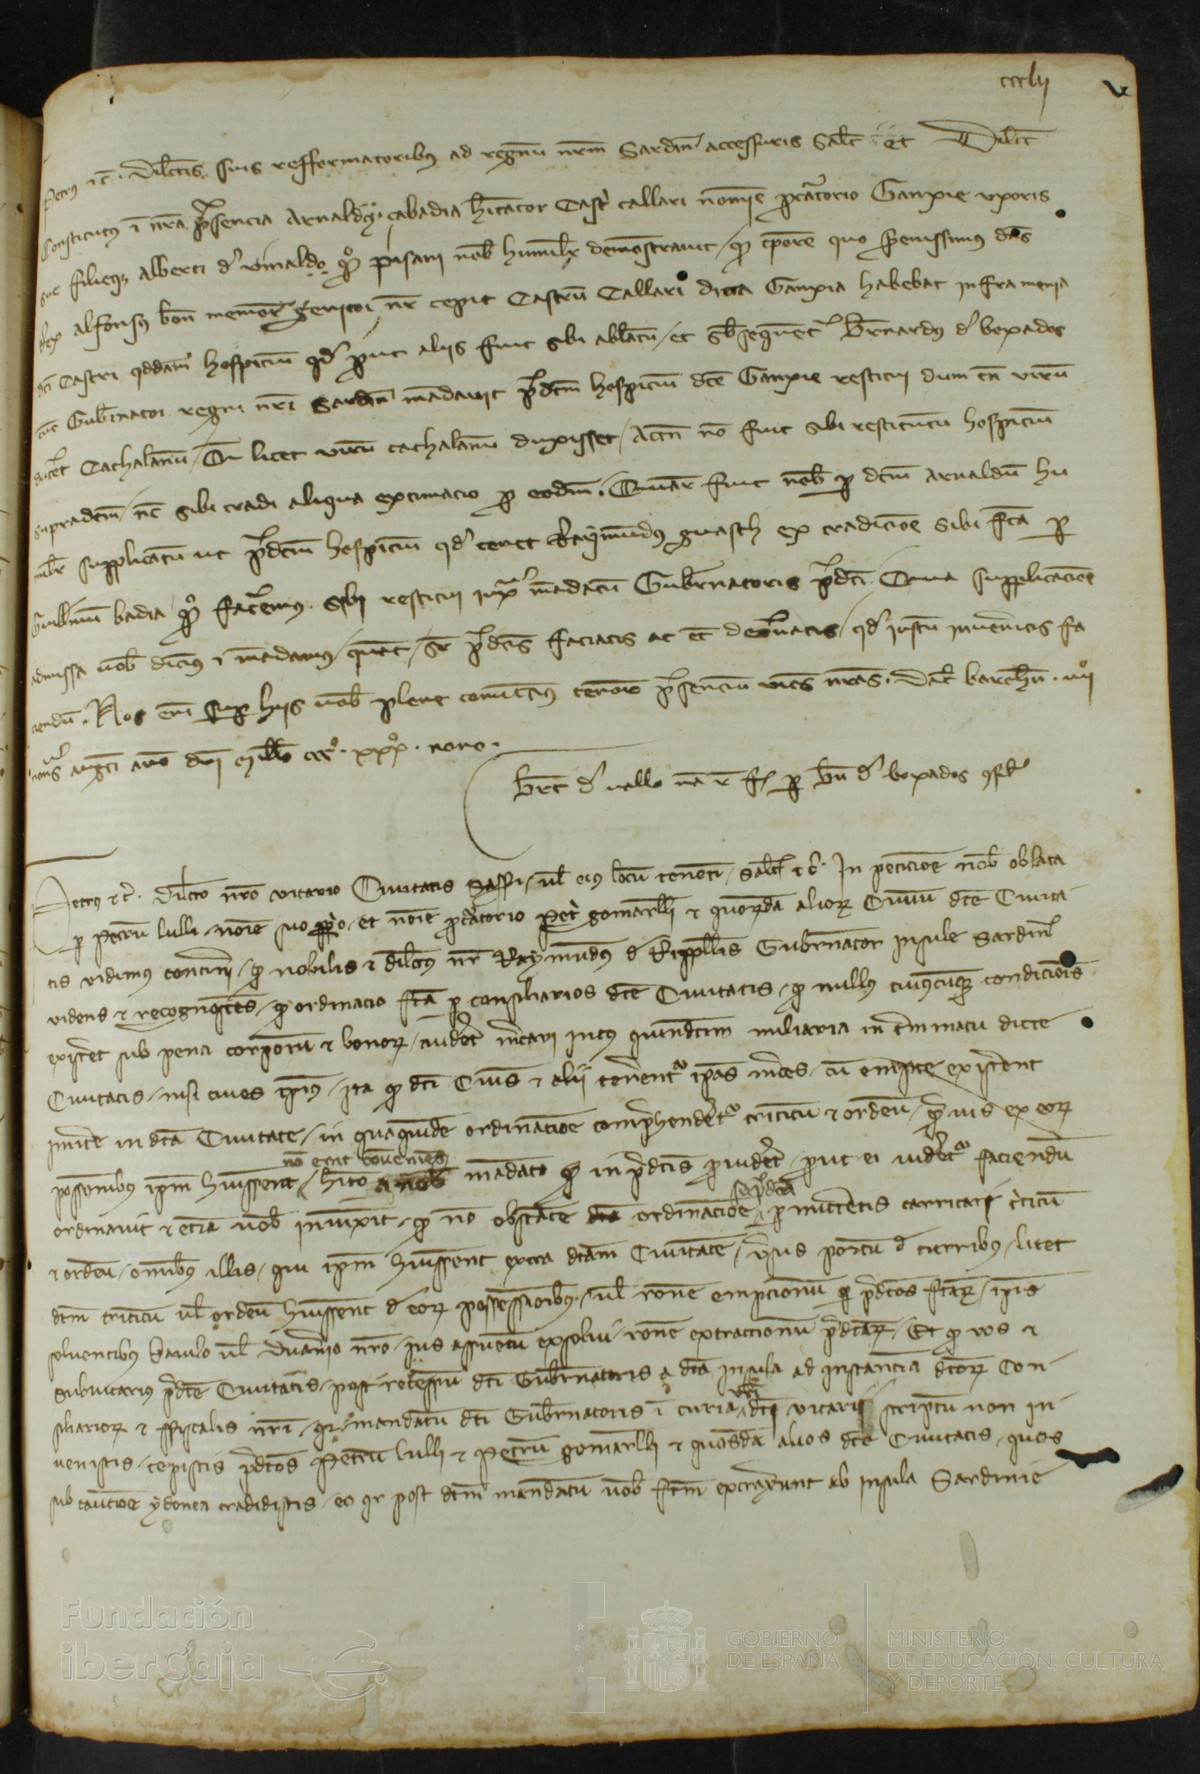 ccclij
Petrus etc. Dilectis suis refformatoribus ad regnum nostrum Sardinie accessuris Salutem et Dilectionem
Constitutus in nostra presencia Arnaldus çabadia habitator Castri Callari nomine procuratorio Ganxie uxoris
sue filieque Alberti de vinaldo quondam pisani nobis humiliter demonstravit quod tempore quo serenissimus dominus
Rex Alfonsus bone memorie genitor noster cepit Castrum Callari dicta Ganxia habebat infra menia
dicti Castri quoddam hospicium quod prout aliis fuit sibi ablatum et subsequenter Bernardus de boxados
tunc Gubernator regni nostri Sardinie mandavit predictum hospicium dicte Ganxie restitui dum tamen virum
duceret Cathalanum Que licet virum cathalanum duxisset Attamen non fuit sibi restitutum hospicium
supradictum nec sibi tradi aliqua extimacio pro eodem. Quare fuit nobis per dictum Arnaldum hu
militer supplicatum ut predictum hospicium quod tenet Raymundus guasch ex tradicione sibi facta per
Guillelmum badia quondam faceremus sibi restitui iuxta mandatum Gubernatoris predicti. Cuius supplicacione
admissa vobis dicimus et mandamus quatenus super predictis faciatis ac etiam decernatis quod iustum inveneritis fa
ciendum. Nos enim super hiis vobis plene comittimus tenore presencium vices nostras. Datum barchinone
augusti anno domini Millo CCCº. XXXº. nono.
de vallo per de boxados
Petrus etc. Dilecto nostro vicario Civitatis Sasseri vel eius locum tenenti salutem etc. In peticione nobis oblata
per Petrum lulli nomine suo proprio et nomine procuratorio Petri gomarelli et quorumdam aliorum Civium dicte Civita
tis vidimus contineri quod nobilis et dilectus noster Raymundus de Rippellis Gubernator Insule Sardinie
videns et recognoscens quod ordinacio facta per consiliarios dicte Civitatis quod nullus cuiuscumque condicionis
existeret sub pena corporum et bonorum auderet mercari intus quindecim miliaria in terminatu dicte
Civitatis nisi cives ipsius ita quod dicti Cives et alii tenerentur ipsas merces cum empte existerent
inmitere in dicta Civitate in qua quidem ordinacione comprehenderetur triticum et ordeum quamvis ex eorum
possessionibus ipsum habuissent
non erat conveniens
habito a nobis mandato quod in predictis provideret prout ei videretur faciendum
ordinavit et etiam vobis iniunxit quod non obstante ordinacione
supradicta
permitteretis carricari triticum
et ordeum omnibus illis qui ipsum habuissent extra dictam Civitatem versus portum de turribus licet
dictum triticum vel ordeum habuissent de eorum possessionibus vel ratione empcionum per predictos factarum ipsis
solventibus baiulo vel duanerio nostro ius assuetum exsolvi ratione extraccionum predictarum Et quod vos et
subvicarius predicte Civitatis post recessum dicti Gubernatoris a dicta insula ad instanciam dictorum Con
siliariorum et fiscalis nostri quia mandatum dicti Gubernatoris in curia
vestri
dicti vicarii scriptum non in
venistis cepistis predictos Petrum lulli et Petrum gomarelli et quosdam alios dicte Civitatis quos
sub caucione ydonea tradidistis eo quia post dictum mandatum vobis factum extraxerunt ab insula Sardinie
Fundación
ibercaja
GOBIERNO
DE ESPAÑA
MINISTERIO
DE EDUCACIÓN, CULTURA
Y DEPORTE